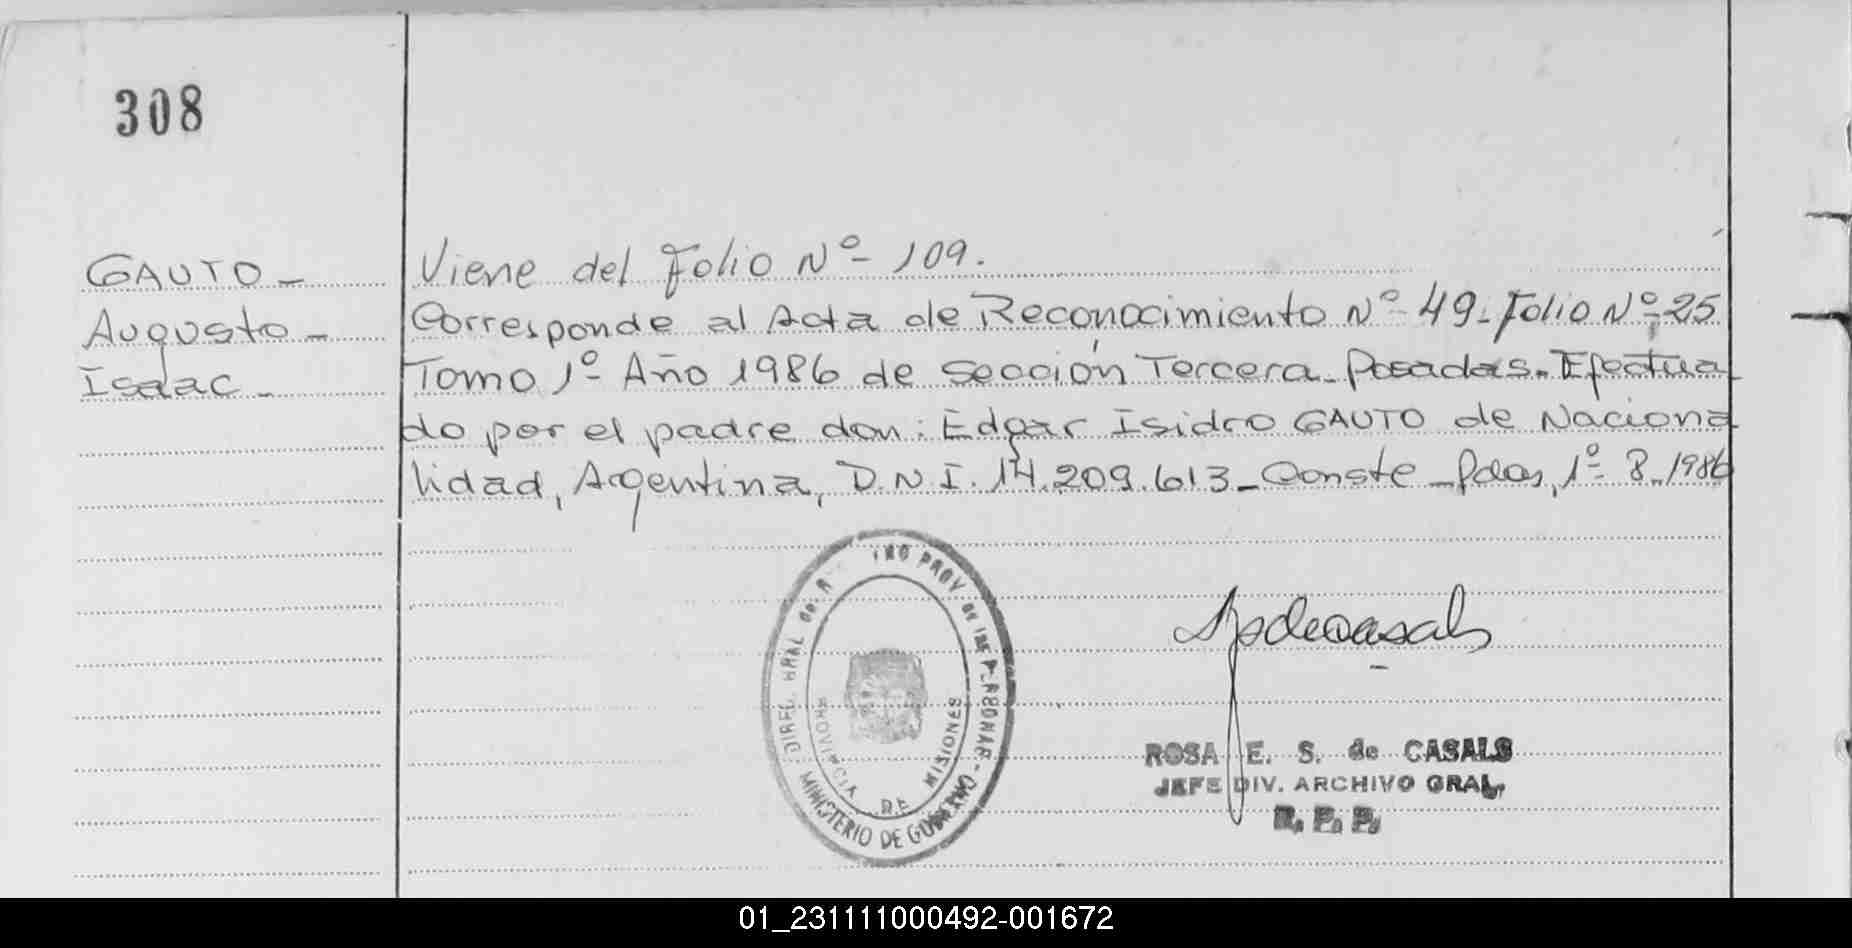 308
GAUTO -
Augusto -
Isaac -
Viene del Folio Nº- 109.
Corresponde al Acta de Reconocimiento Nº- 49- Folio Nº- 25
Tomo 1º- Año 1986 de Sección Tercera- Posadas- Efectua
do por el padre don: Edgar Isidro GAUTO de Naciona
lidad, Argentina, D.N.I. 14.209.613- Conste - Pdas, 1º- 8- 1986
DIREC. GRAL de. PROV. de las PERSONAS -
MINISTERIO DE GOBIERNO
PROVINCIA DE MISIONES
ROSA E. S. de CASALS
JEFE DIV. ARCHIVO GRAL.
R. P. P.
01_231111000492-001672